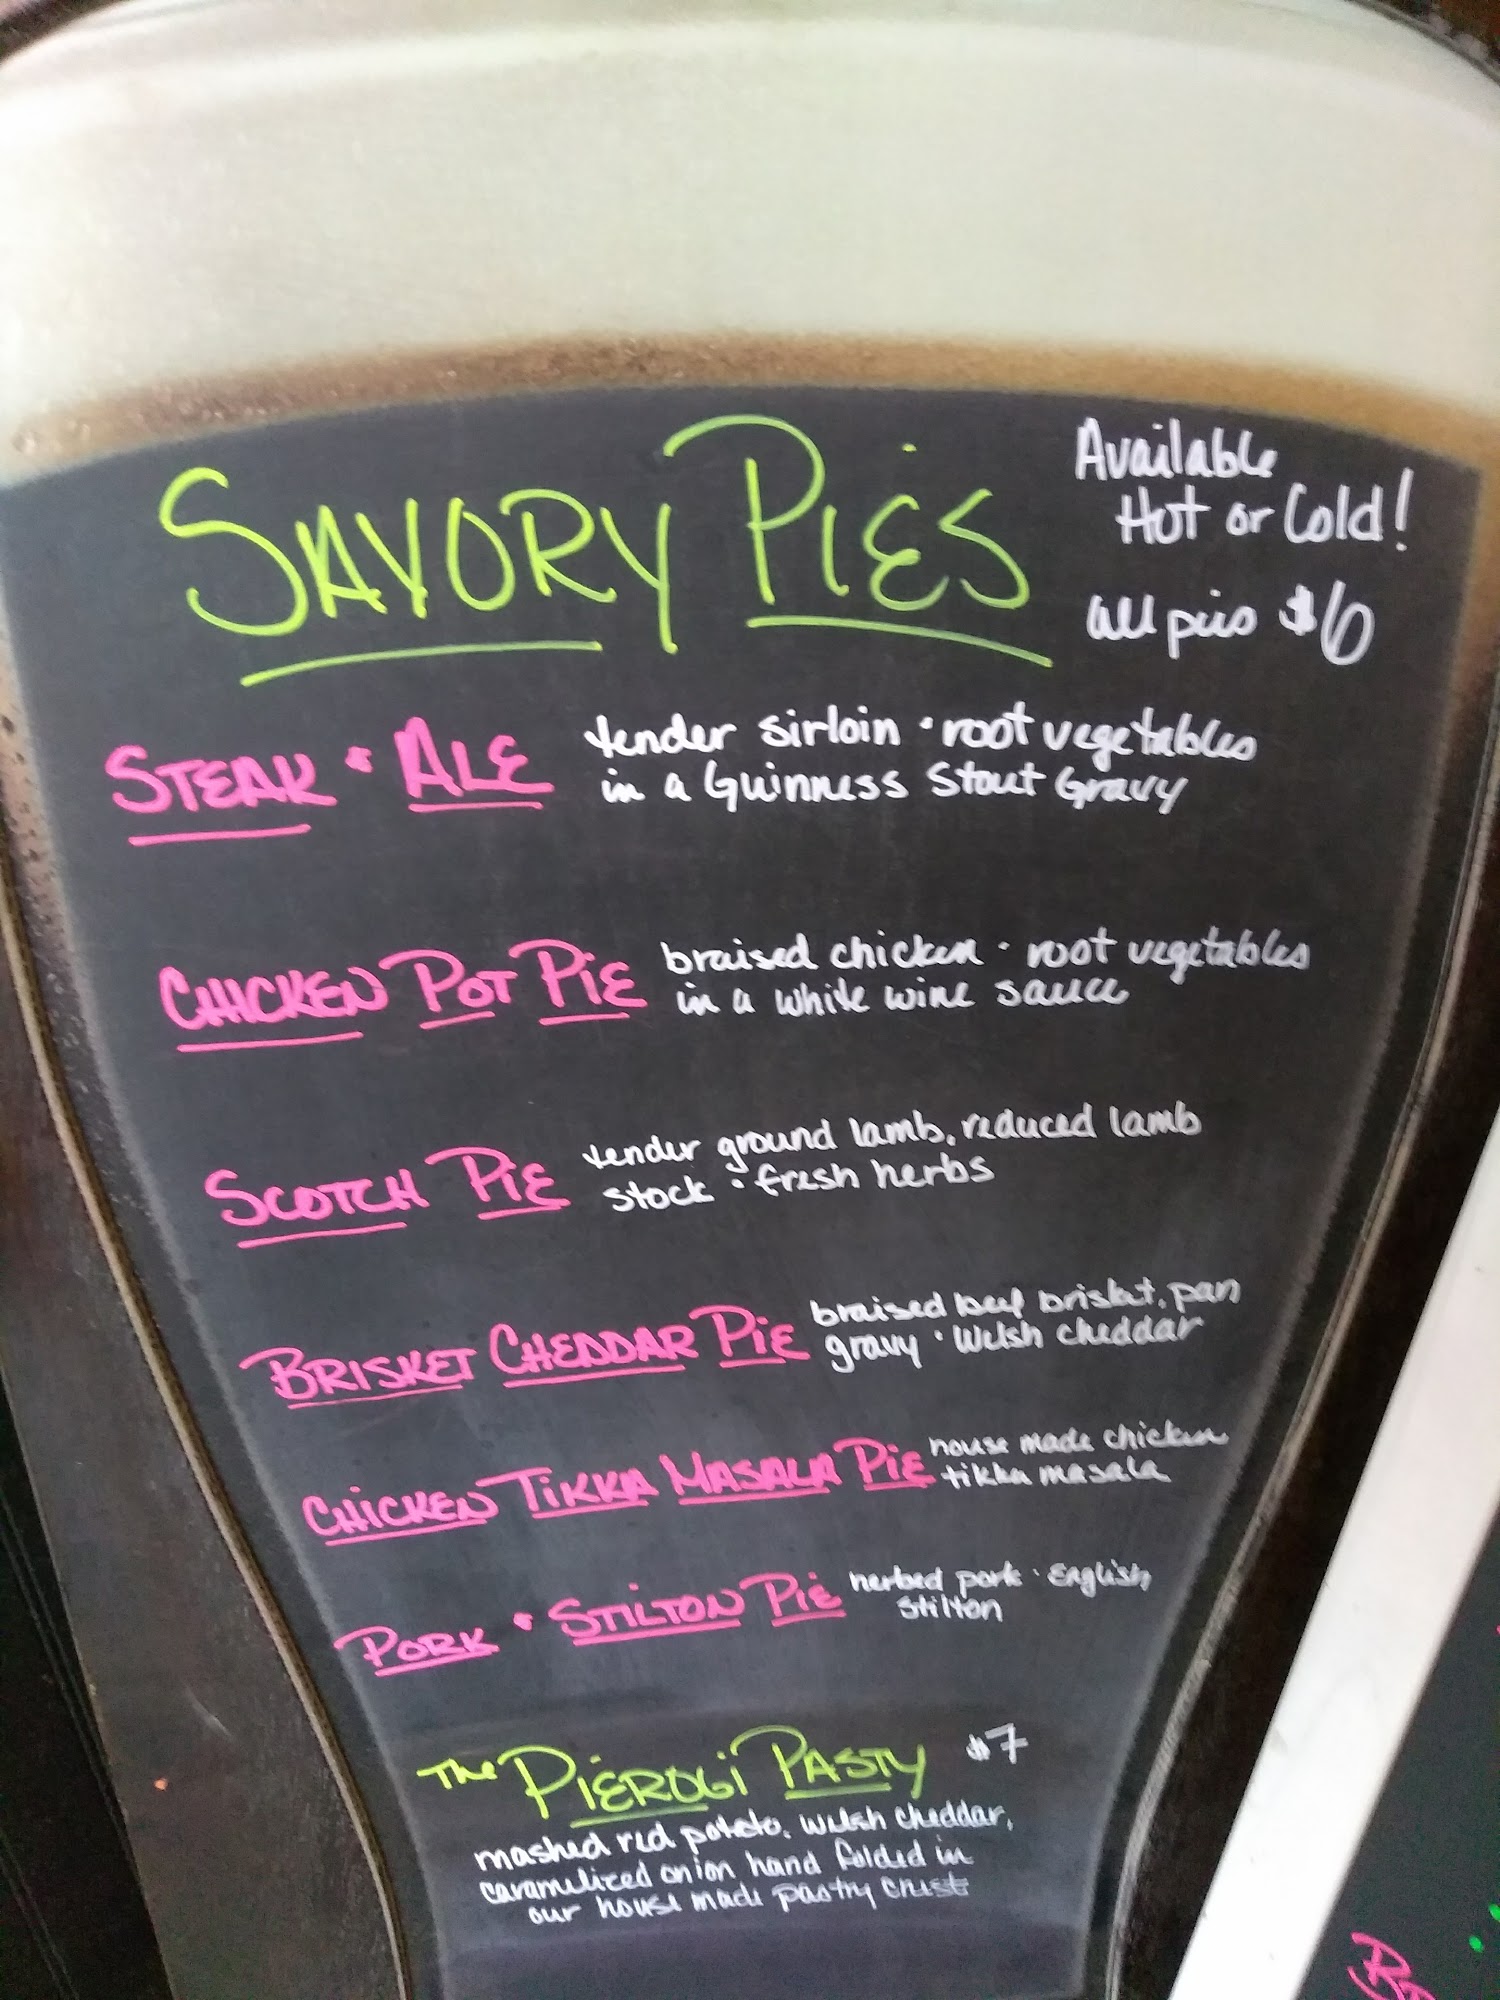 SAVORY PIES
Available
Hot or Cold!
All pies $6
STEAK & ALE
tender sirloin & root vegetables
in a Guinness Stout Gravy
CHICKEN POT PIE
braised chicken & root vegetables
in a white wine sauce
SCOTCH PIE
tender ground lamb, reduced lamb
stock & fresh herbs
BRISKET CHEDDAR PIE
braised beef brisket, pan
gravy & Welsh cheddar
CHICKEN TIKKA MASALA PIE
house made chicken
tikka masala
PORK & STILTON PIE
herbed pork & English
Stilton
The PIEROGI PASTY $7
mashed red potato, welsh cheddar,
caramelized onion hand folded in
our house made pastry crust